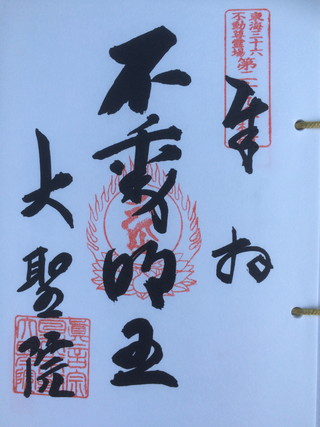 東海三十六
不動尊霊場
第二
奉拝
不動明王
大聖院